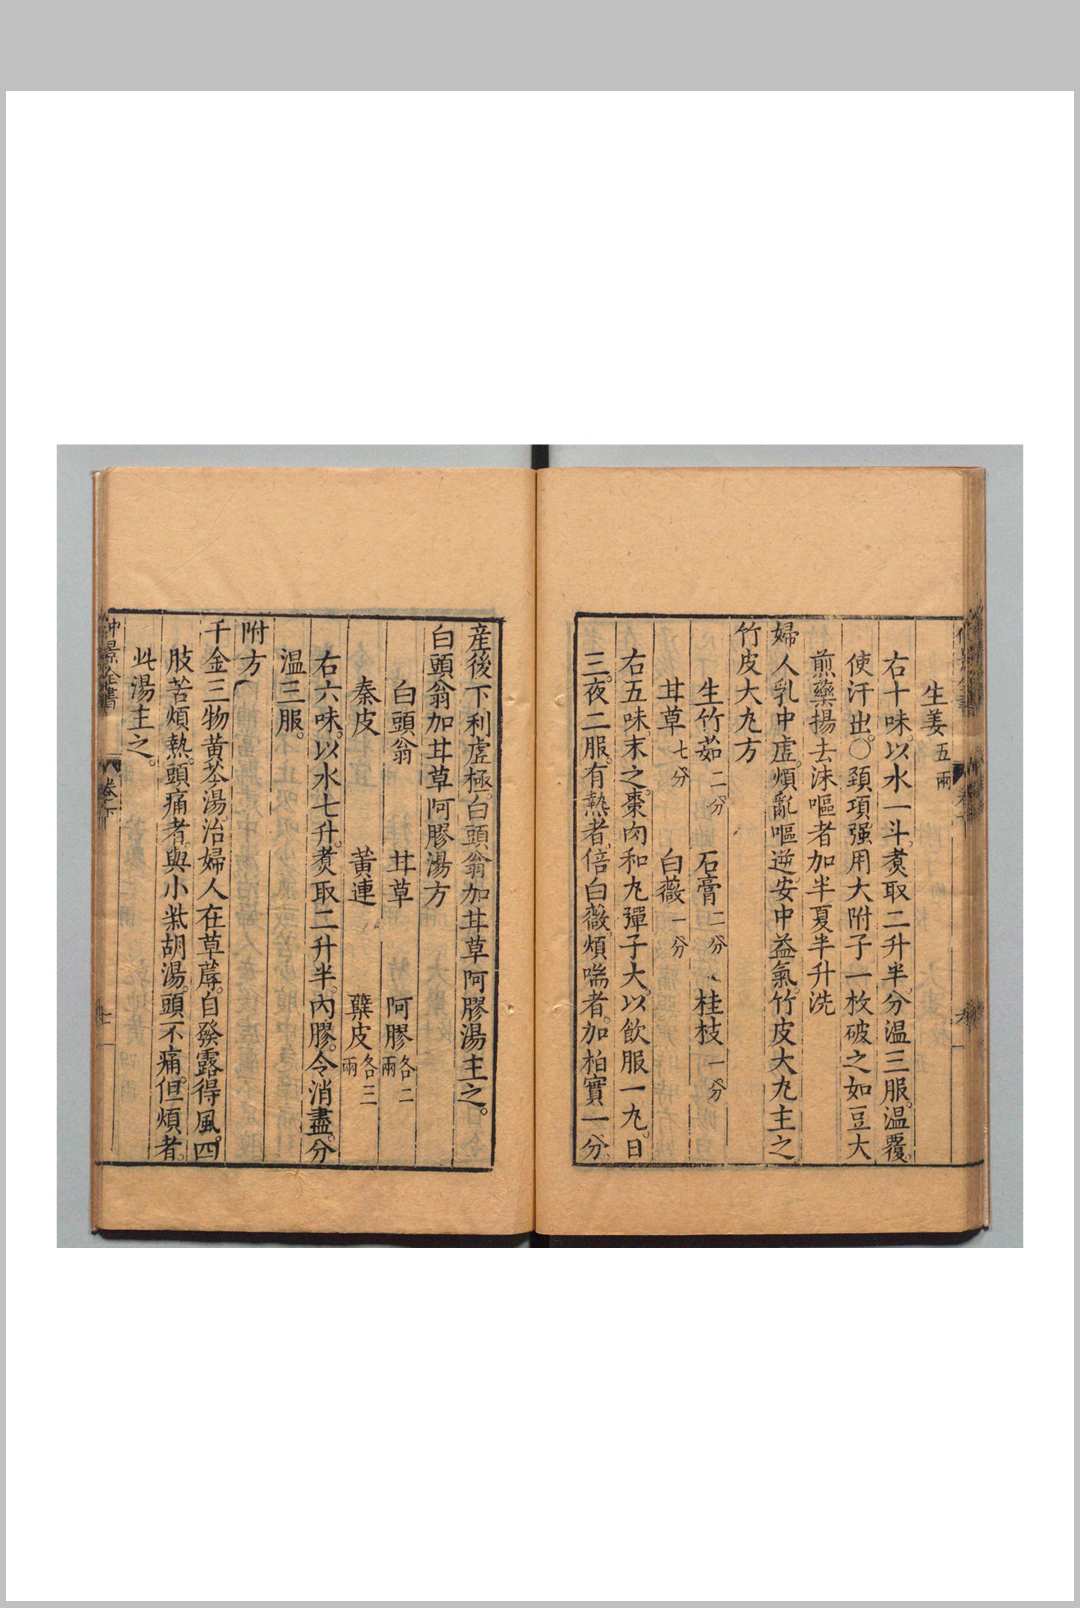 生姜五兩
右十味。以水一斗。煑取二升半。分溫三服。溫覆。
使汗出。〇頚項强用大附子一枚破之如豆大
煎藥揚去沫嘔者加半夏半升洗
婦人乳中虛。煩亂嘔逆安中益氣。竹皮大丸主之。
竹皮大丸方
生竹茹二分 石膏二分 桂枝一分
甘草七分 白薇一分
右五味。末之。棗肉和丸彈子大。以飲服一丸。日
三。夜二服。有熱者。倍白薇。煩喘者。加柏實一分。
產後下利虛極。白頭翁加甘草阿膠湯主之。
白頭翁加甘草阿膠湯方
白頭翁 甘草 阿膠各二兩
秦皮 黃連 蘗皮各三兩
右六味。以水七升。煑取二升半。內膠。令消盡。分
溫三服。
附方
千金三物黃芩湯。治婦人在草蓐。自發露得風。四
肢苦煩熱。頭痛者。與小柴胡湯。頭不痛。但煩者。
此湯主之。
仲景全書 卷下